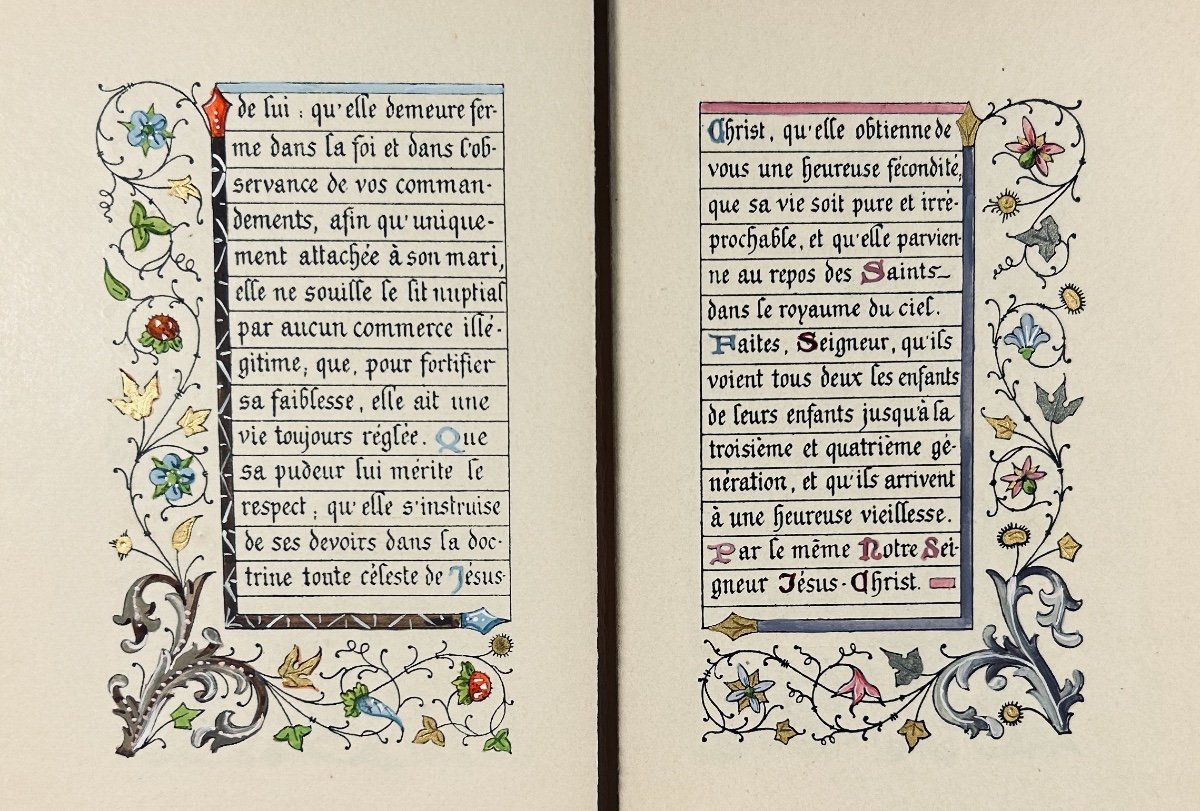 de lui : qu'elle demeure fer-
me dans la foi et dans l'ob-
servance de vos comman-
dements, afin qu'unique-
ment attachée à son mari,
elle ne souille le lit nuptial
par aucun commerce illé-
gitime; que, pour fortifier
sa faiblesse, elle ait une
vie toujours réglée. Que
sa pudeur lui mérite le
respect ; qu'elle s'instruise
de ses devoirs dans la doc-
trine toute céleste de Jésus-
Christ, qu'elle obtienne de
vous une heureuse fécondité,
que sa vie soit pure et irré-
prochable, et qu'elle parvien-
ne au repos des Saints
dans le royaume du ciel.
Faites, Seigneur, qu'ils
voient tous deux les enfants
de leurs enfants jusqu'à la
troisième et quatrième gé-
nération, et qu'ils arrivent
à une heureuse vieillesse.
Par le même Notre Sei-
gneur Jésus-Christ.